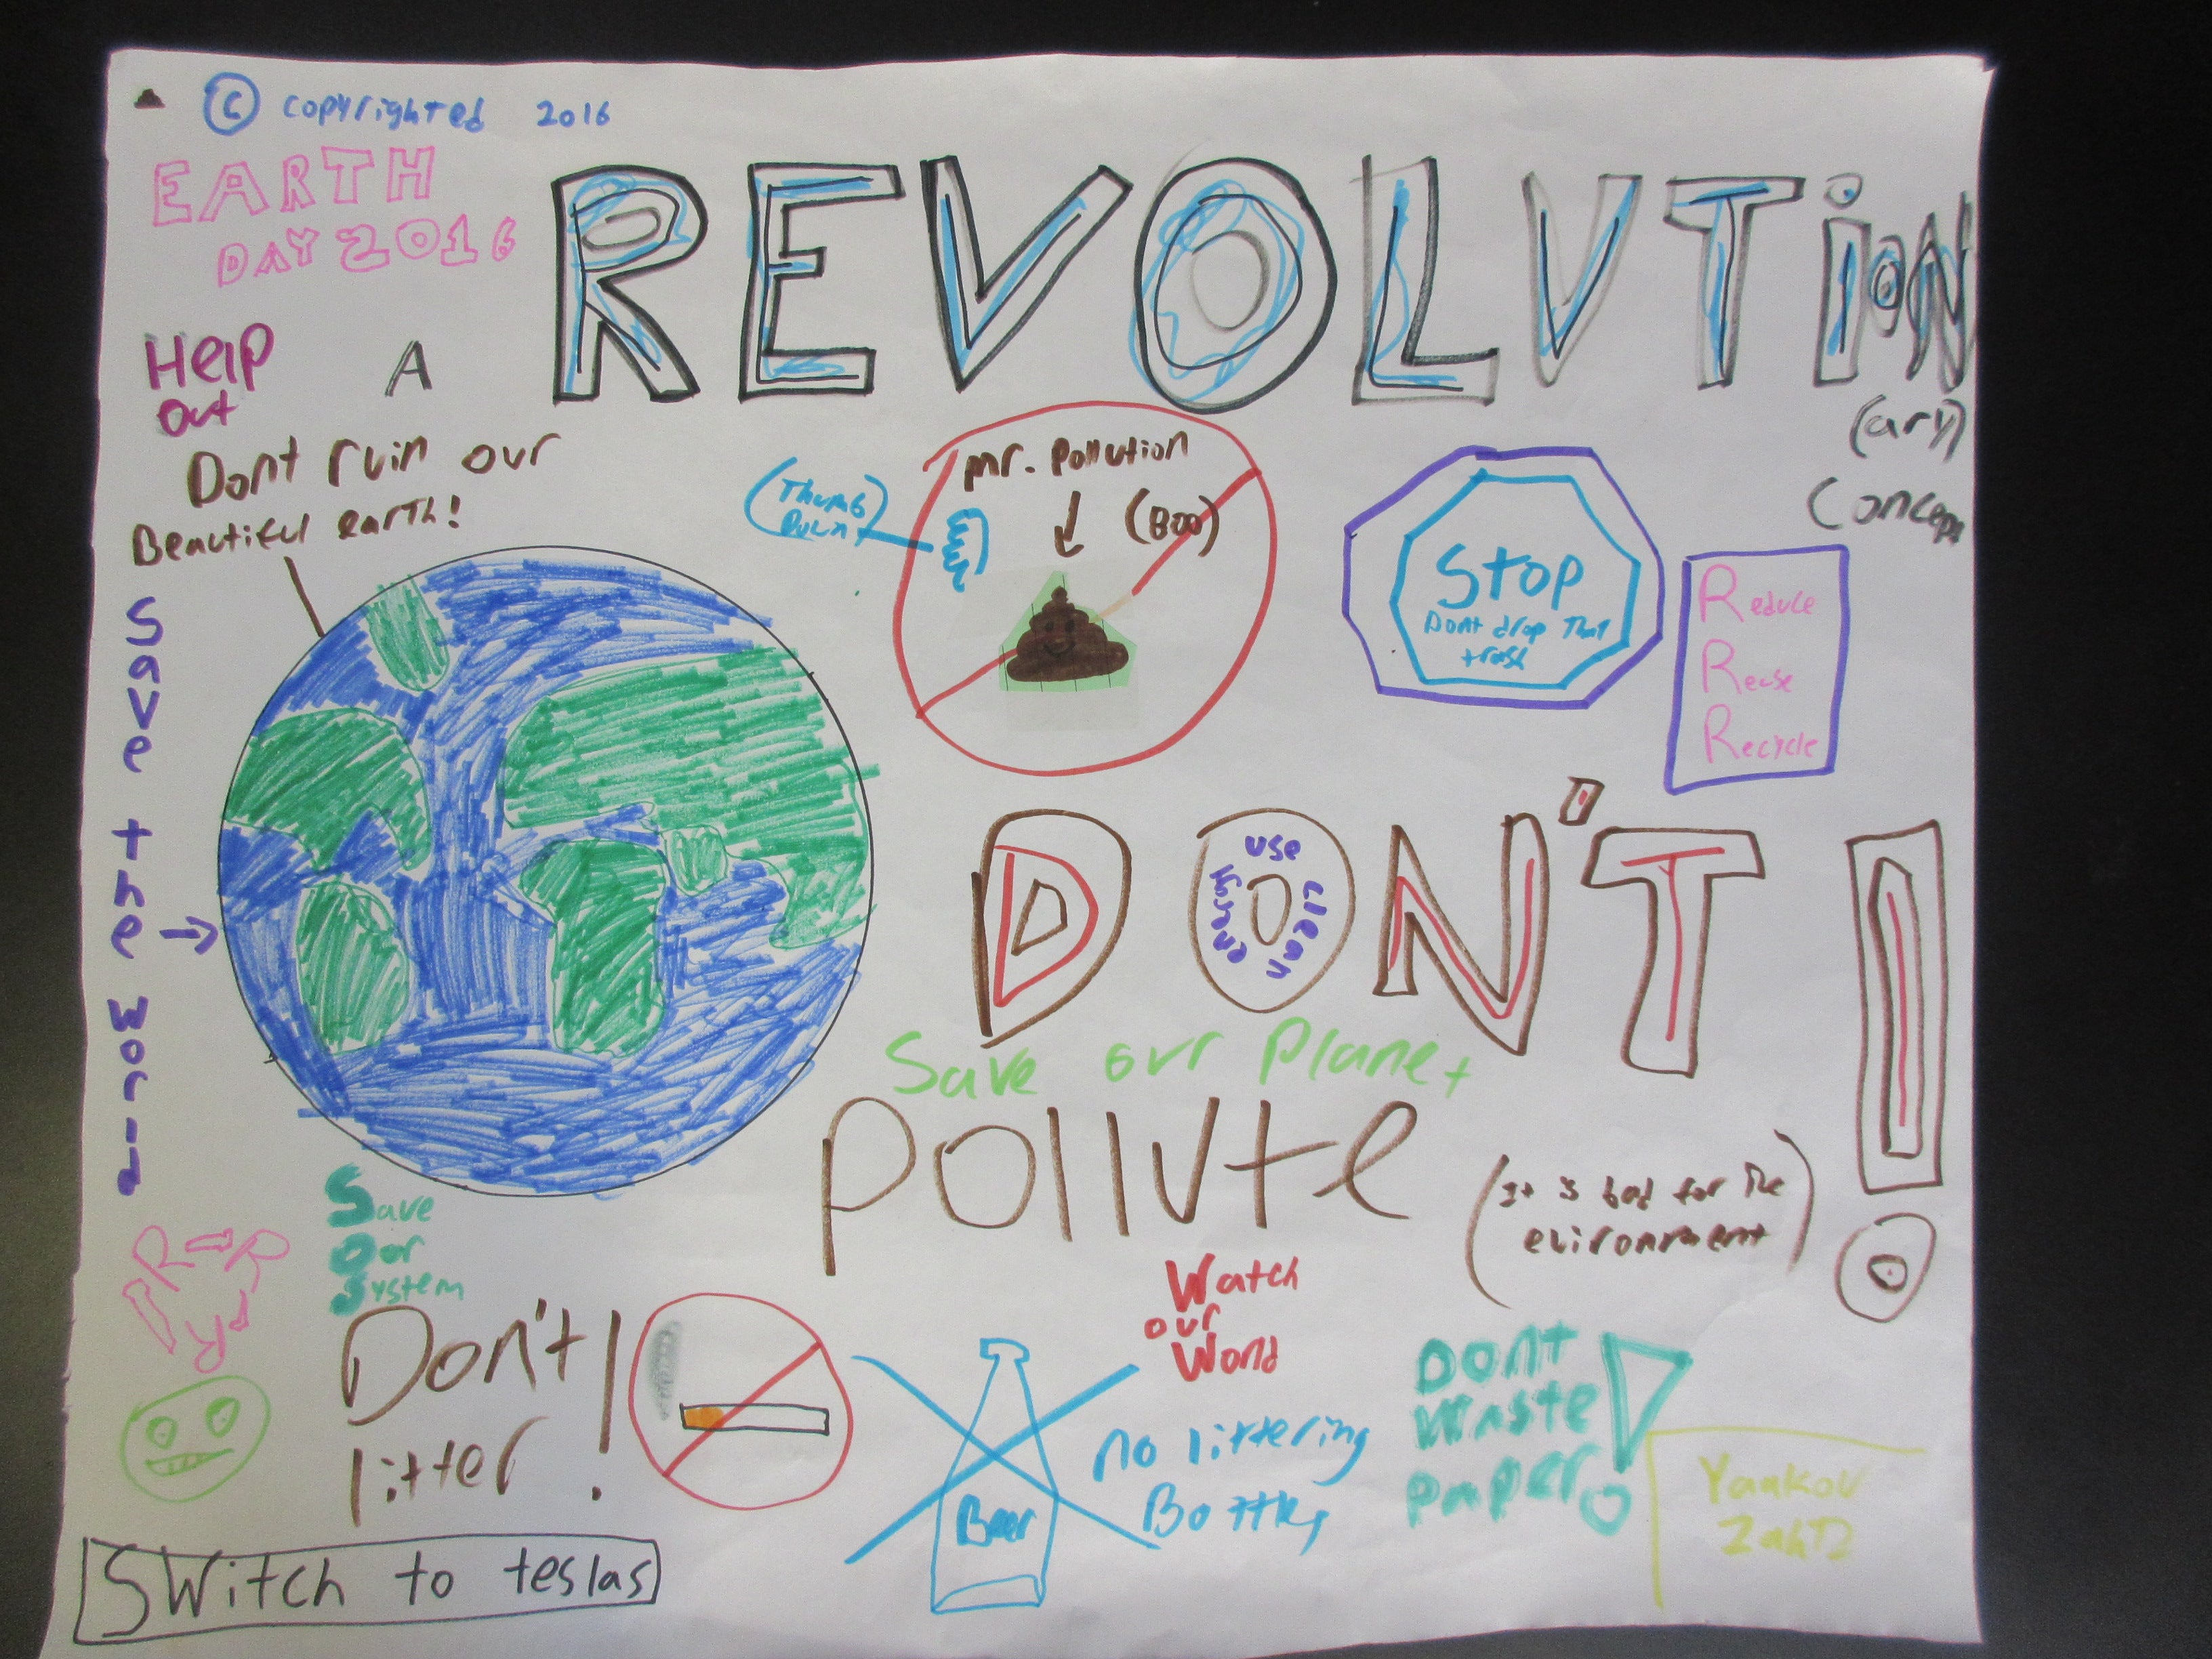 © copyrighted 2016
EARTH
DAY 2016
A REVOLUTiON
(ary)
Concept
Help
out
Dont ruin our
Beautiful earth!
Save the World
(Thumbs
Down)
mr. Pollution
(Boo)
Stop
Dont drop That
trash
Reduce
Reuse
Recycle
DON'T!
use clean energy
Save our Planet
pollute
(It is bad for the
evironment)
Save
Oor
System
R R R
Don't
litter!
Watch
our
World
Beer
No littering
Bottles
Dont
Waste
paper!
Yaakov
Zahtz
Switch to teslas